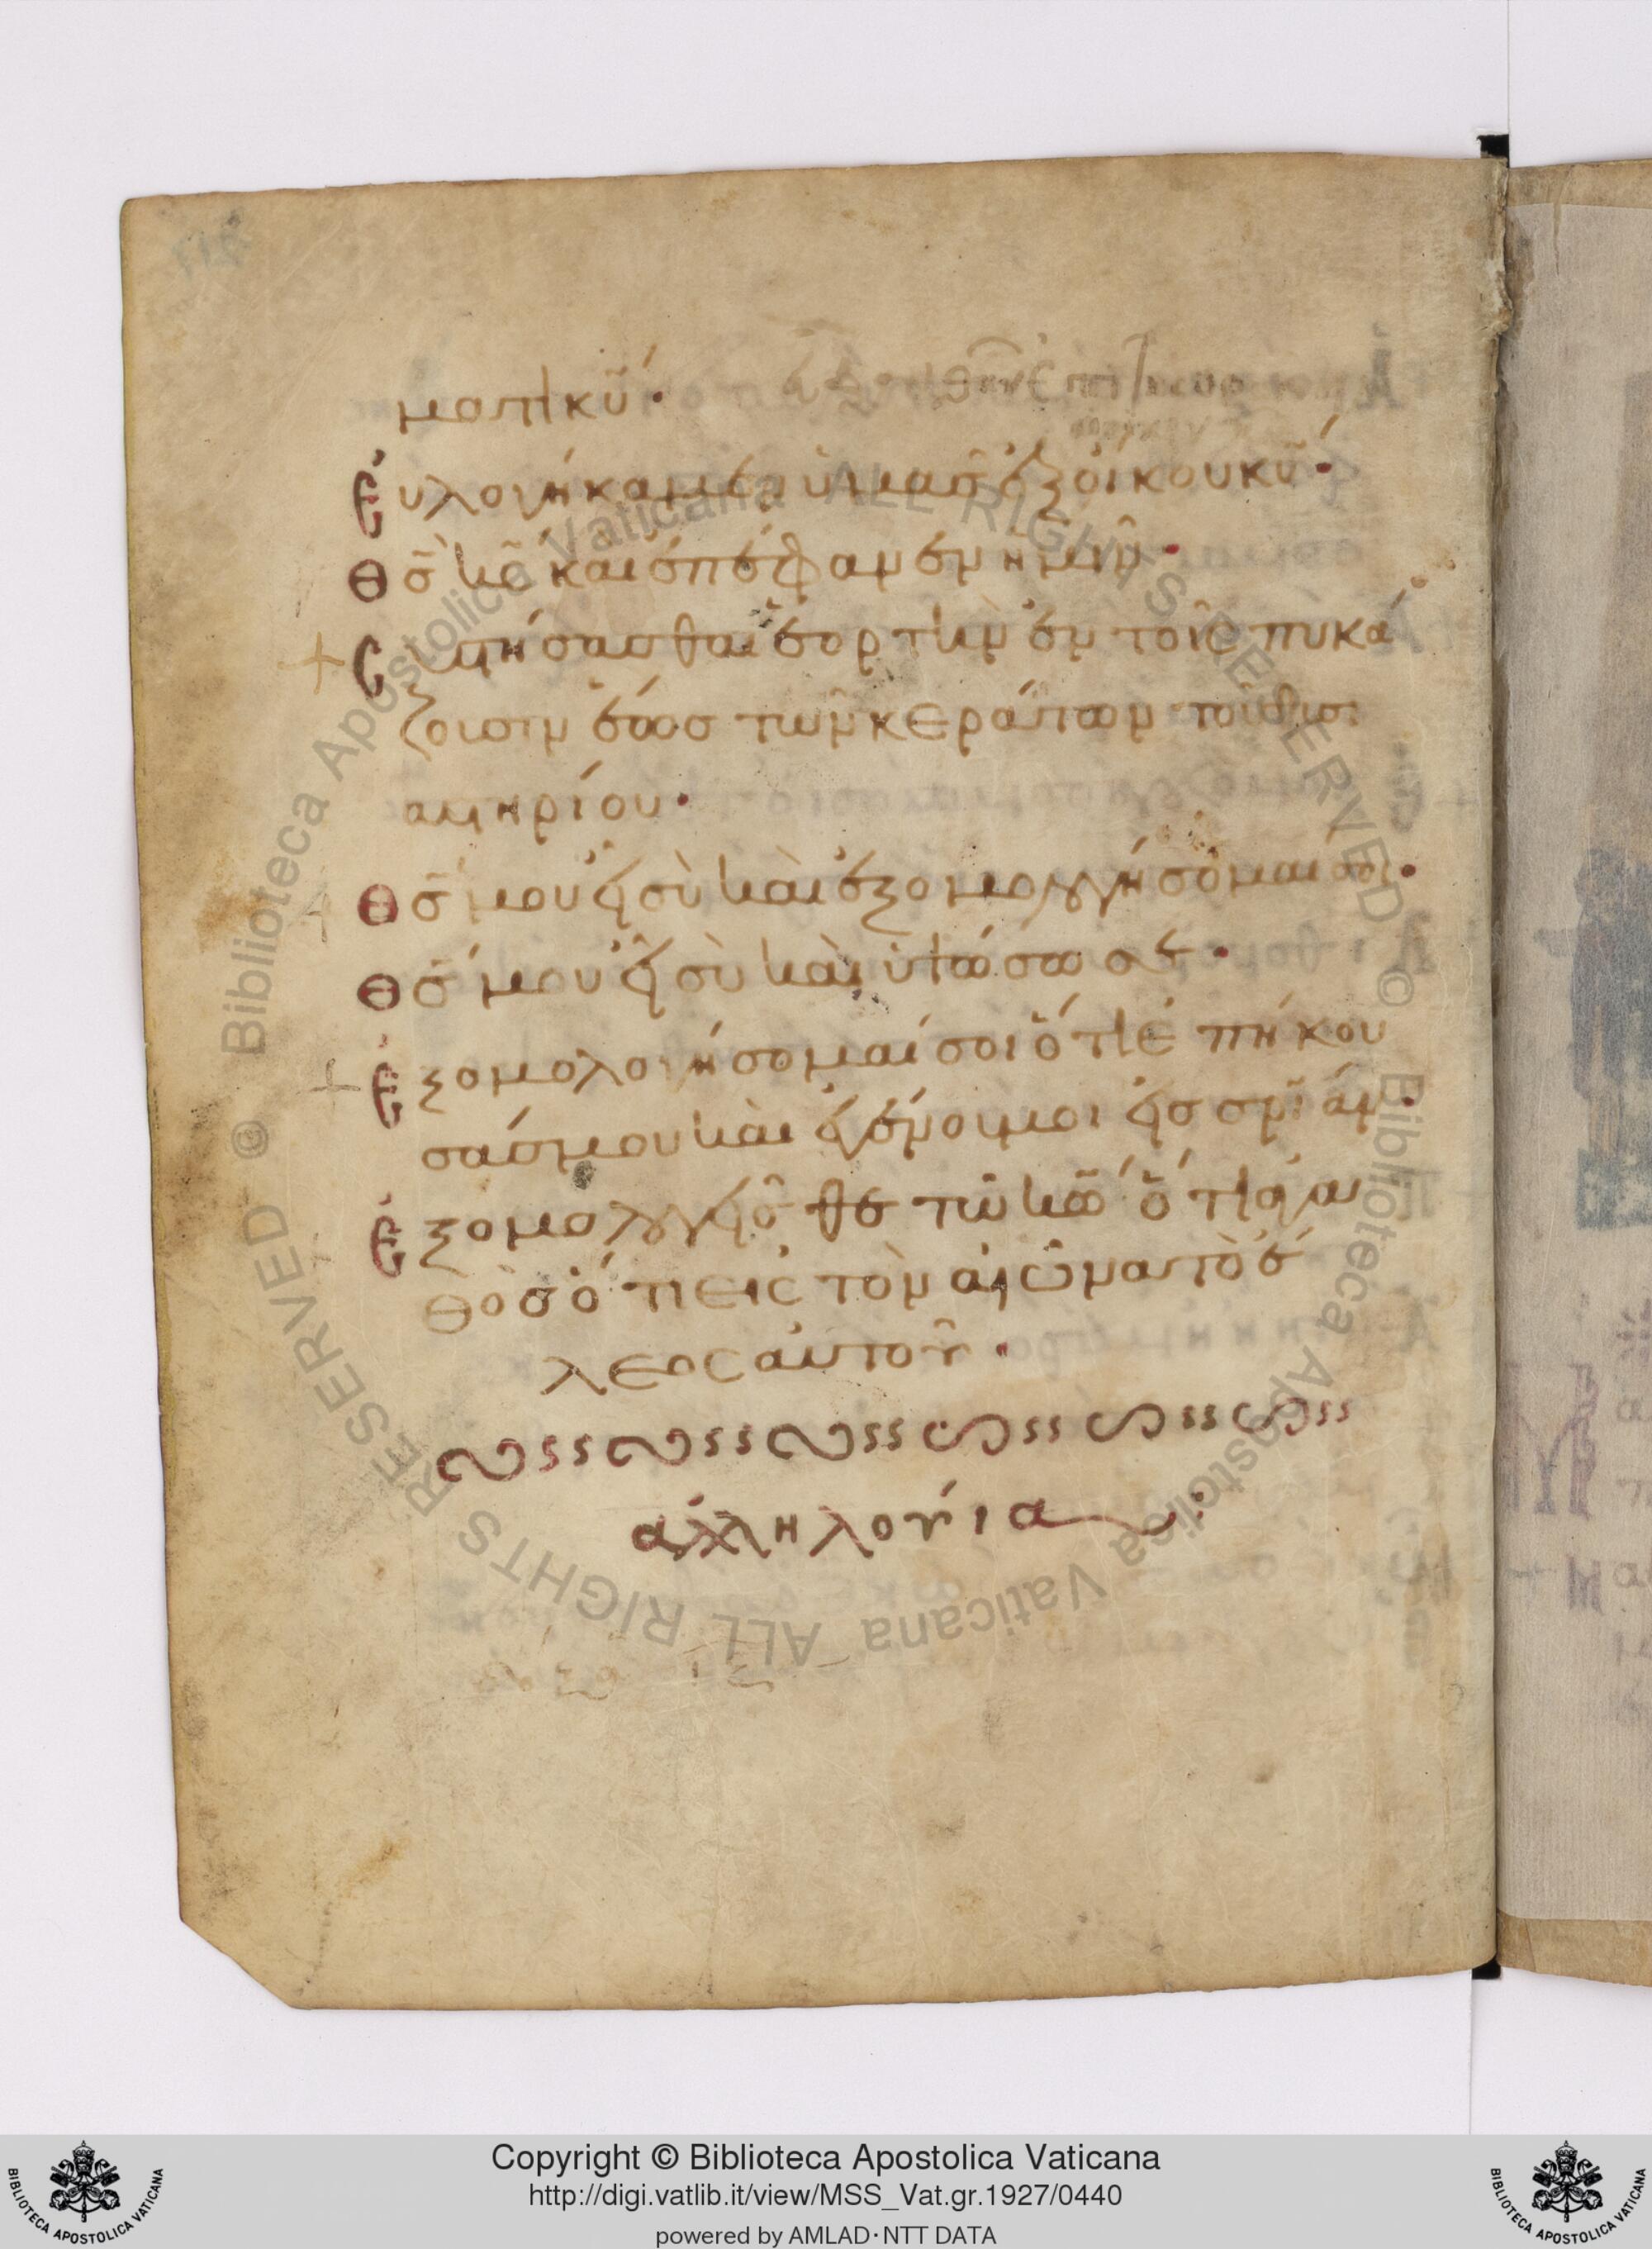 ματι κυ̅·
Ευλογήκαμεν ὑμᾶς ἐξ οἴκου κυ̅·
Θς̅ κς̅ καὶ ἐπέφανεν ἡμῖν·
Συστήσασθαι ἑορτὴν ἐν τοῖς πυκά
ζουσιν ἕως τῶν κεράτων τοῦ θυσι
αστηρίου·
Θς̅ μου εἶ σὺ καὶ ἐξομολογήσομαί σοι·
Θς̅ μου εἶ σὺ καὶ ὑψώσω σε·
Ἐξομολογήσομαί σοι ὅτι ἐπήκου
σάς μου καὶ ἐγένου μοι εἰς σρι̅αν·
Ἐξομολογεῖσθε τῷ κω̅ ὅτι ἀγα
θὸς ὅτι εἰς τὸν αἰῶνα τὸ ἔ
λεος αὐτοῦ·
ἀλληλούϊα:
Copyright © Biblioteca Apostolica Vaticana
http://digi.vatlib.it/view/MSS_Vat.gr.1927/0440
powered by AMLAD·NTT DATA
BIBLIOTECA APOSTOLICA VATICANA
BIBLIOTECA APOSTOLICA VATICANA
© Biblioteca Apostolica Vaticana ALL RIGHTS RESERVED
© Biblioteca Apostolica Vaticana ALL RIGHTS RESERVED